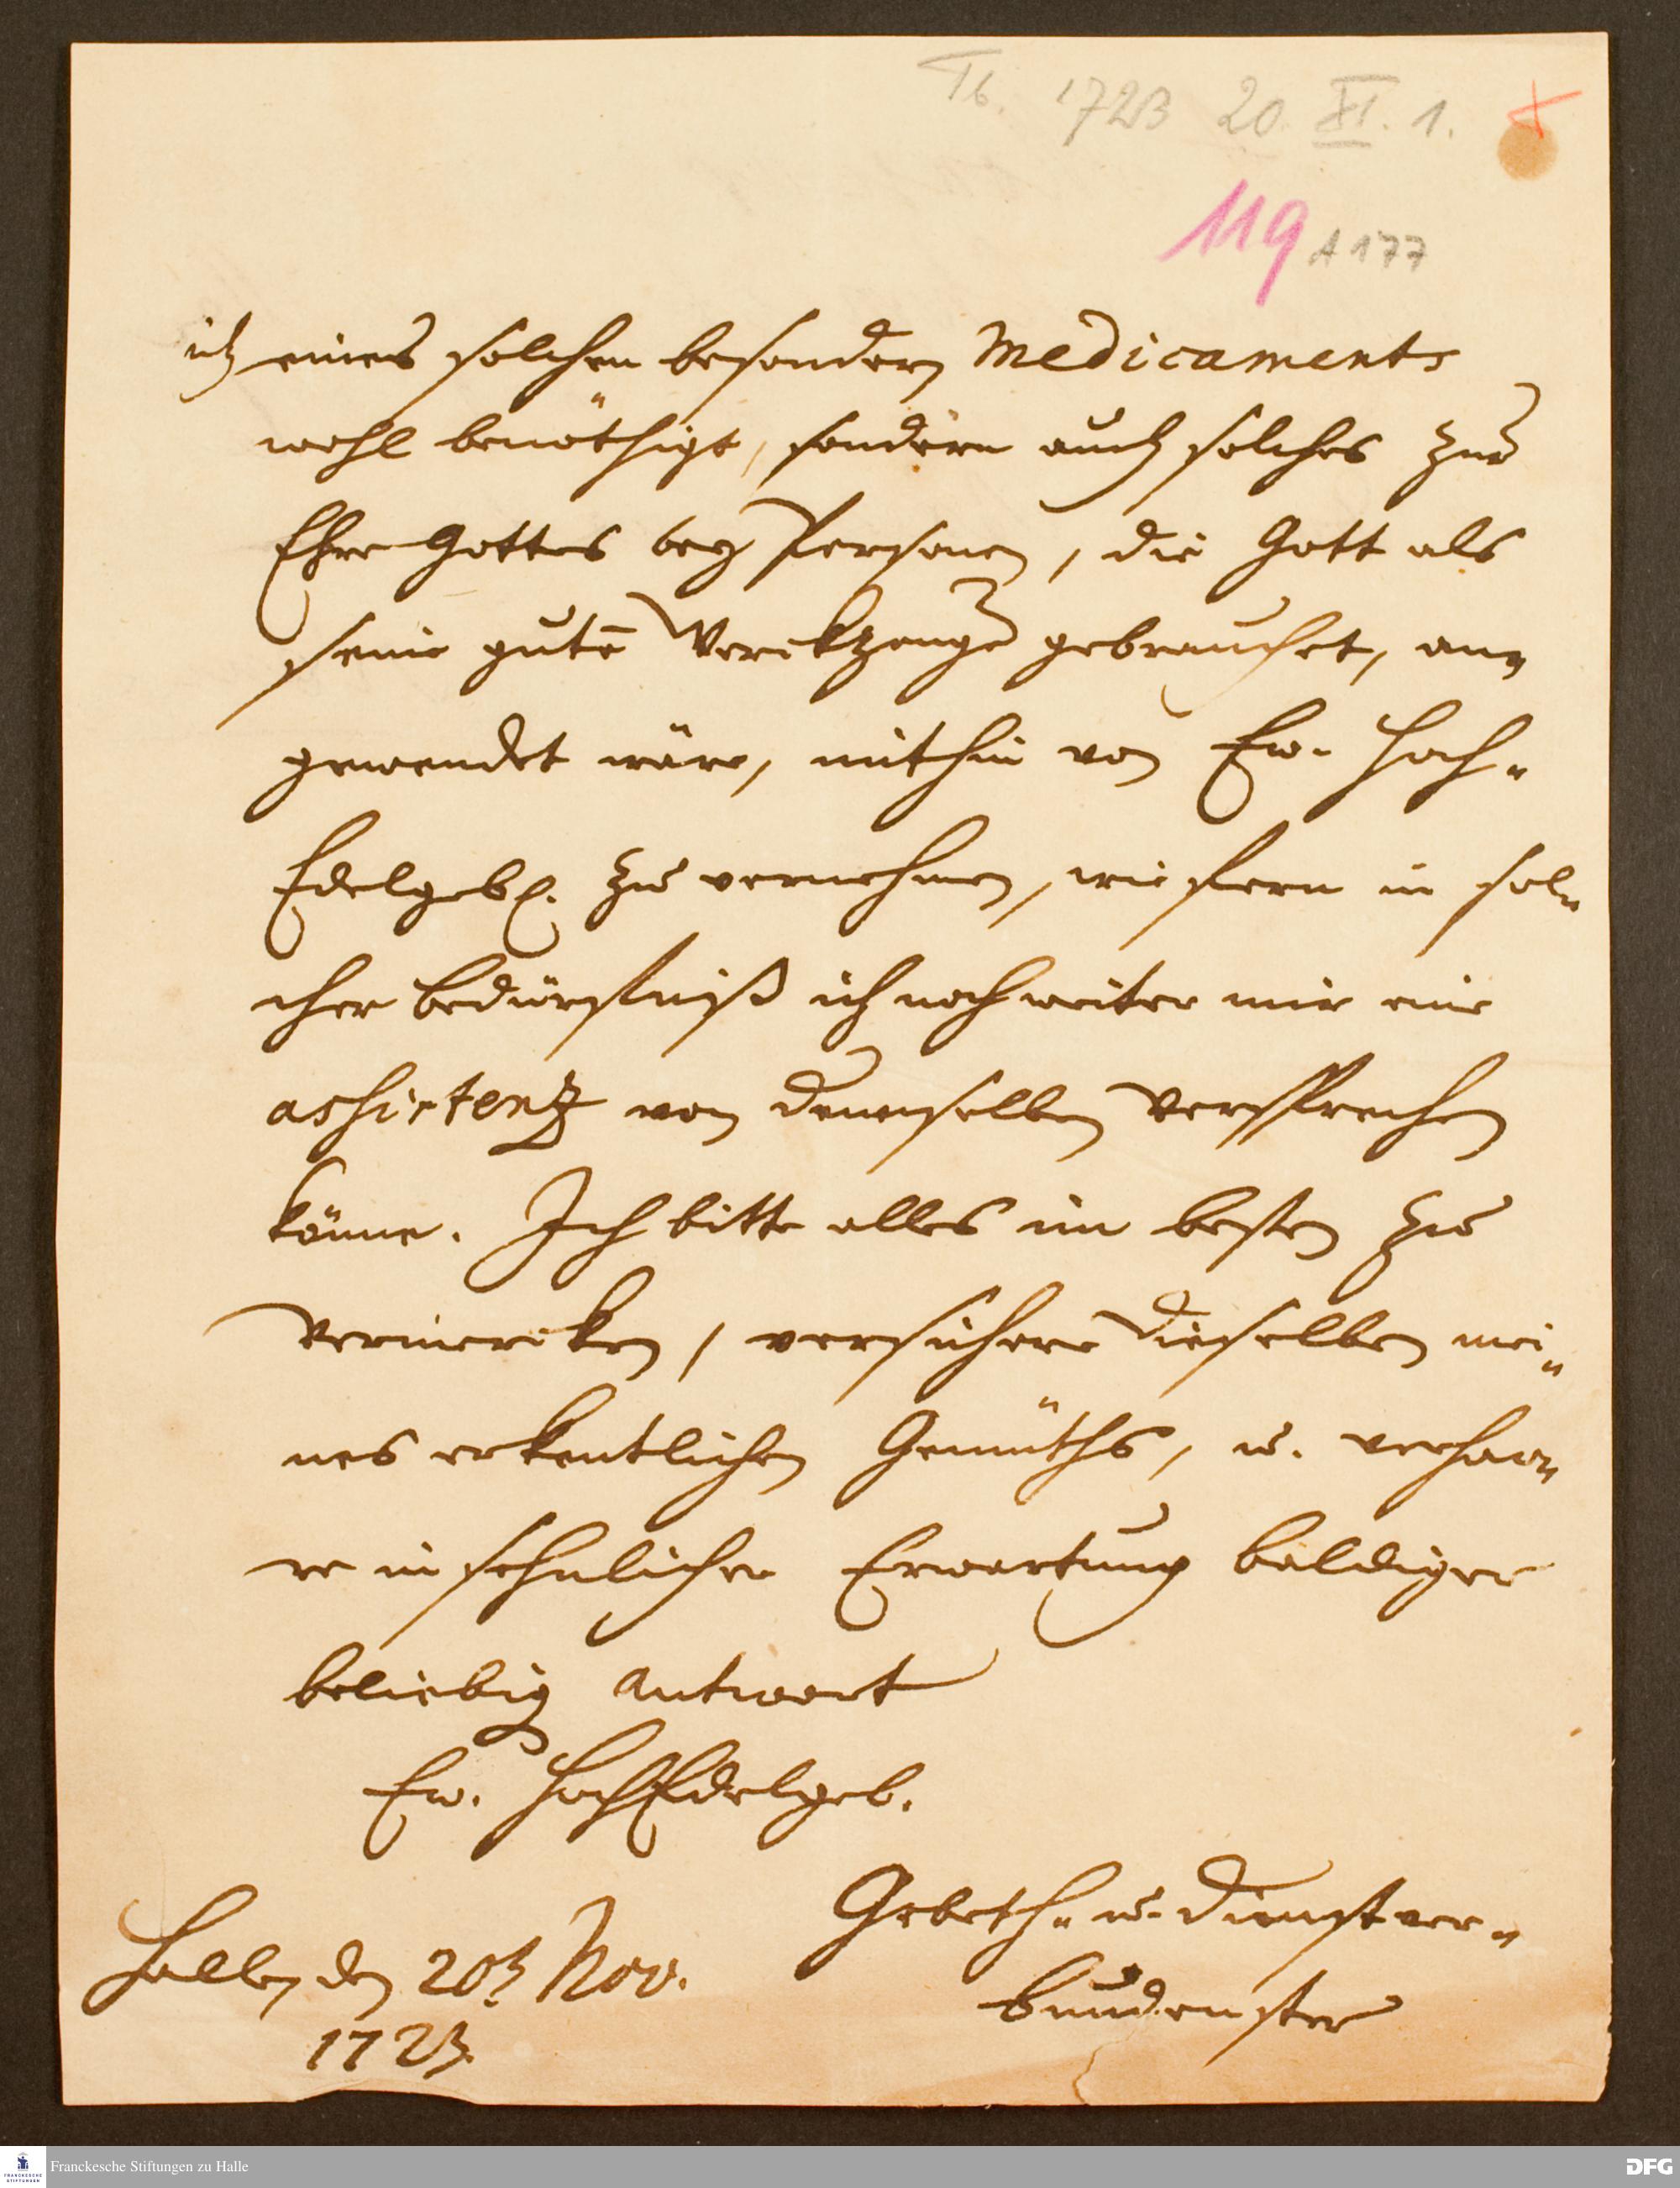 Tb. 1723 20. XI. 1.
119 A 177
ich eines solchen besondern Medicaments
wohl benöthigt, sondern auch solches zur
Ehre Gottes bey Personen, die Gott als
seine gute Werckzeuge gebrauchet, an-
gewendet wäre, mithin von Ew. Hoch-
Edelgeb. zu vernehmen, wie fern in sol-
cher bedürfniß ich noch weiter mir eine
assistentz von demselben versprechen
könne. Ich bitte alles im besten zu
vermercken, versichere dieselben mei-
nes erkentlichen Gemüths, u. verhar-
re in sehnlicher Erwartung baldiger
beliebig antwort
Ew. HochEdelgeb.
Gebeth- u. dienstver-
bundenster
Halle, den 20t Nov.
1723.
Franckesche Stiftungen zu Halle
DFG